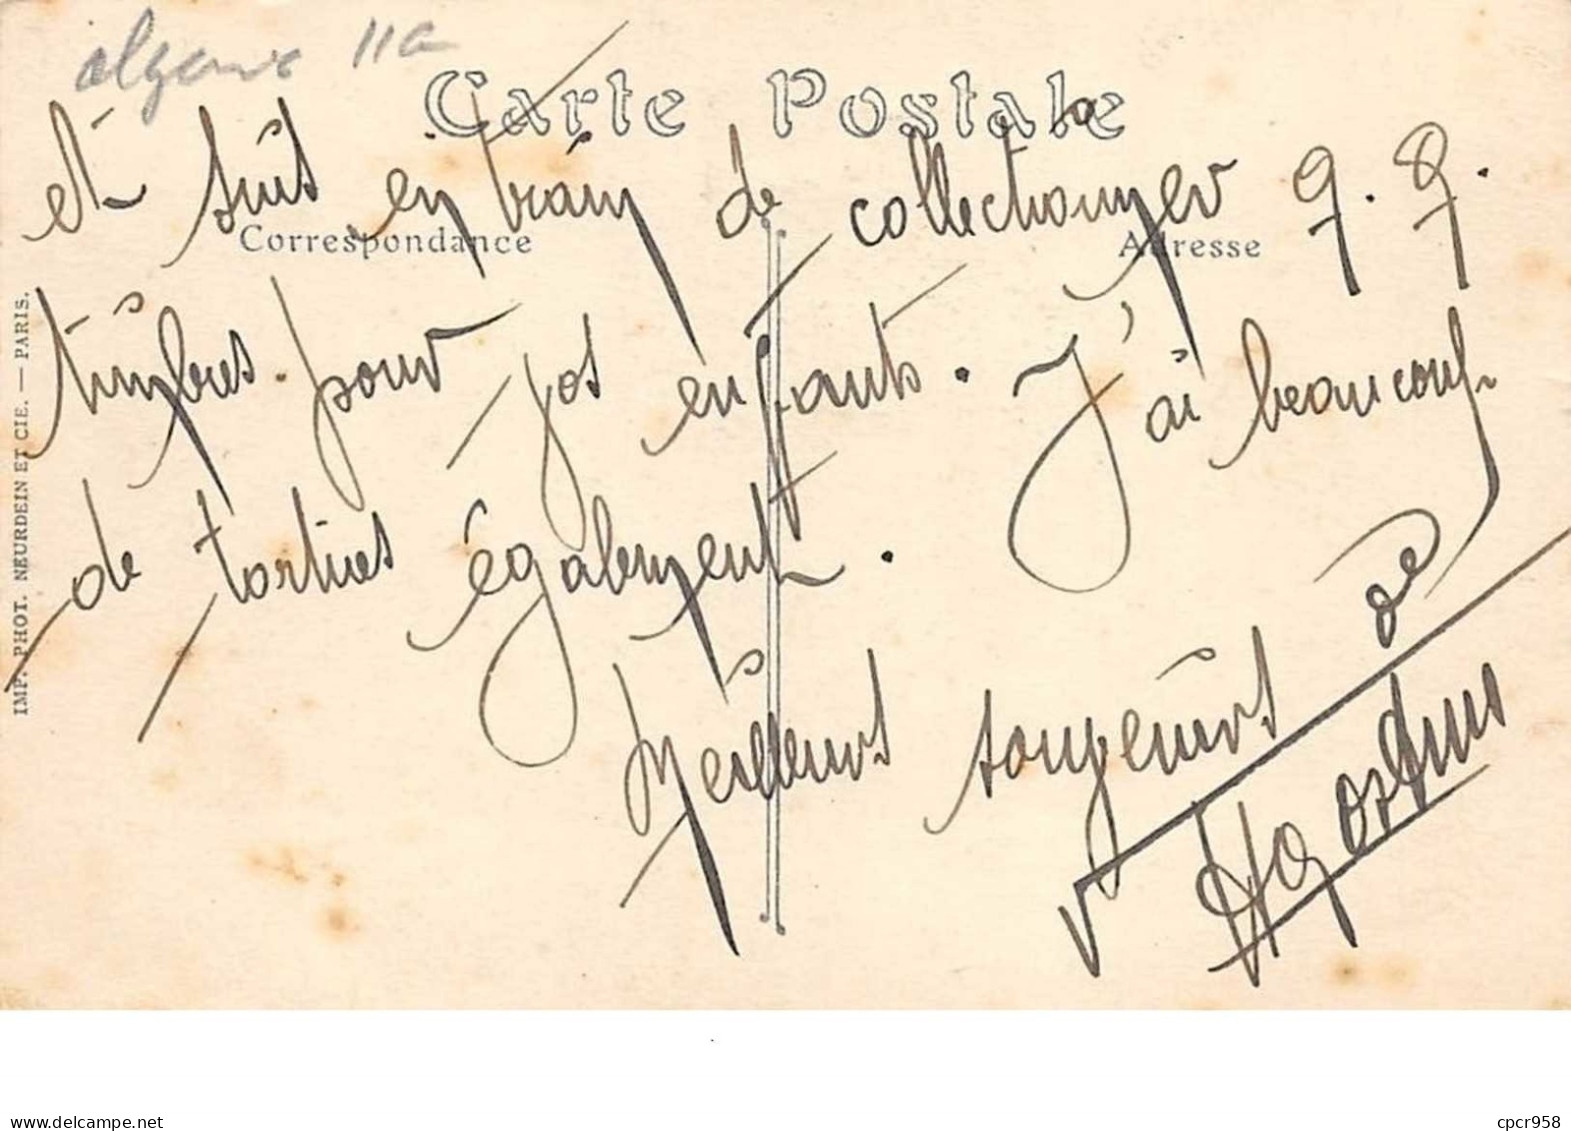 11a
Carte Postale
et suis en train de collectionner q. q.
Correspondance
Adresse
timbres pour vos enfants. J'ai beaucoup
de tortues également.
Meilleurs songeurs de
IMP. PHOT. NEURDEIN ET CIE. — PARIS.
cpcr958
www.delcampe.net